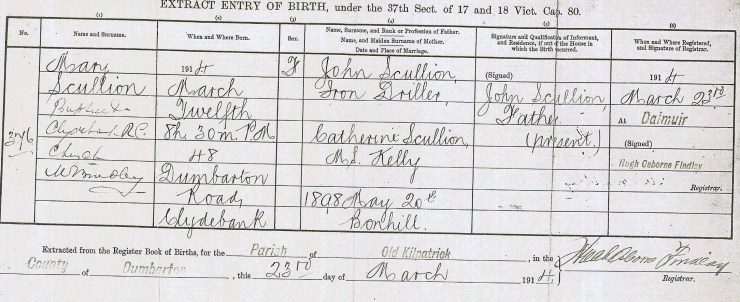 EXTRACT ENTRY OF BIRTH, under the 37th Sect. of 17 and 18 Vict. Cap. 80.
(1) (2) (3) (4) (5) (6)
No. Name and Surname. When and Where Born. Sex. Name, Surname, and Rank or Profession of Father. Name, and Maiden Surname of Mother. Date and Place of Marriage. Signature and Qualification of Informant, and Residence, if out of the House in which the Birth occurred. When and Where Registered, and Signature of Registrar.
Mary 1914 F John Scullion, (Signed) 1914
Scullion March Iron Driller, John Scullion, March 23rd
Twelfth Father At Dalmuir
376 Clydebank R.C. 8h. 30m. P.M. Catherine Scullion, (present.) (Signed)
Church 48 M.S. Kelly Hugh Osborne Findlay
Dumbarton Registrar.
Road, 1898 May 20th
Clydebank Bonhill.
Extracted from the Register Book of Births, for the Parish of Old Kilpatrick, in the
County of Dumbarton, this 23rd day of March 1914. Hugh Osborne Findlay
Registrar.